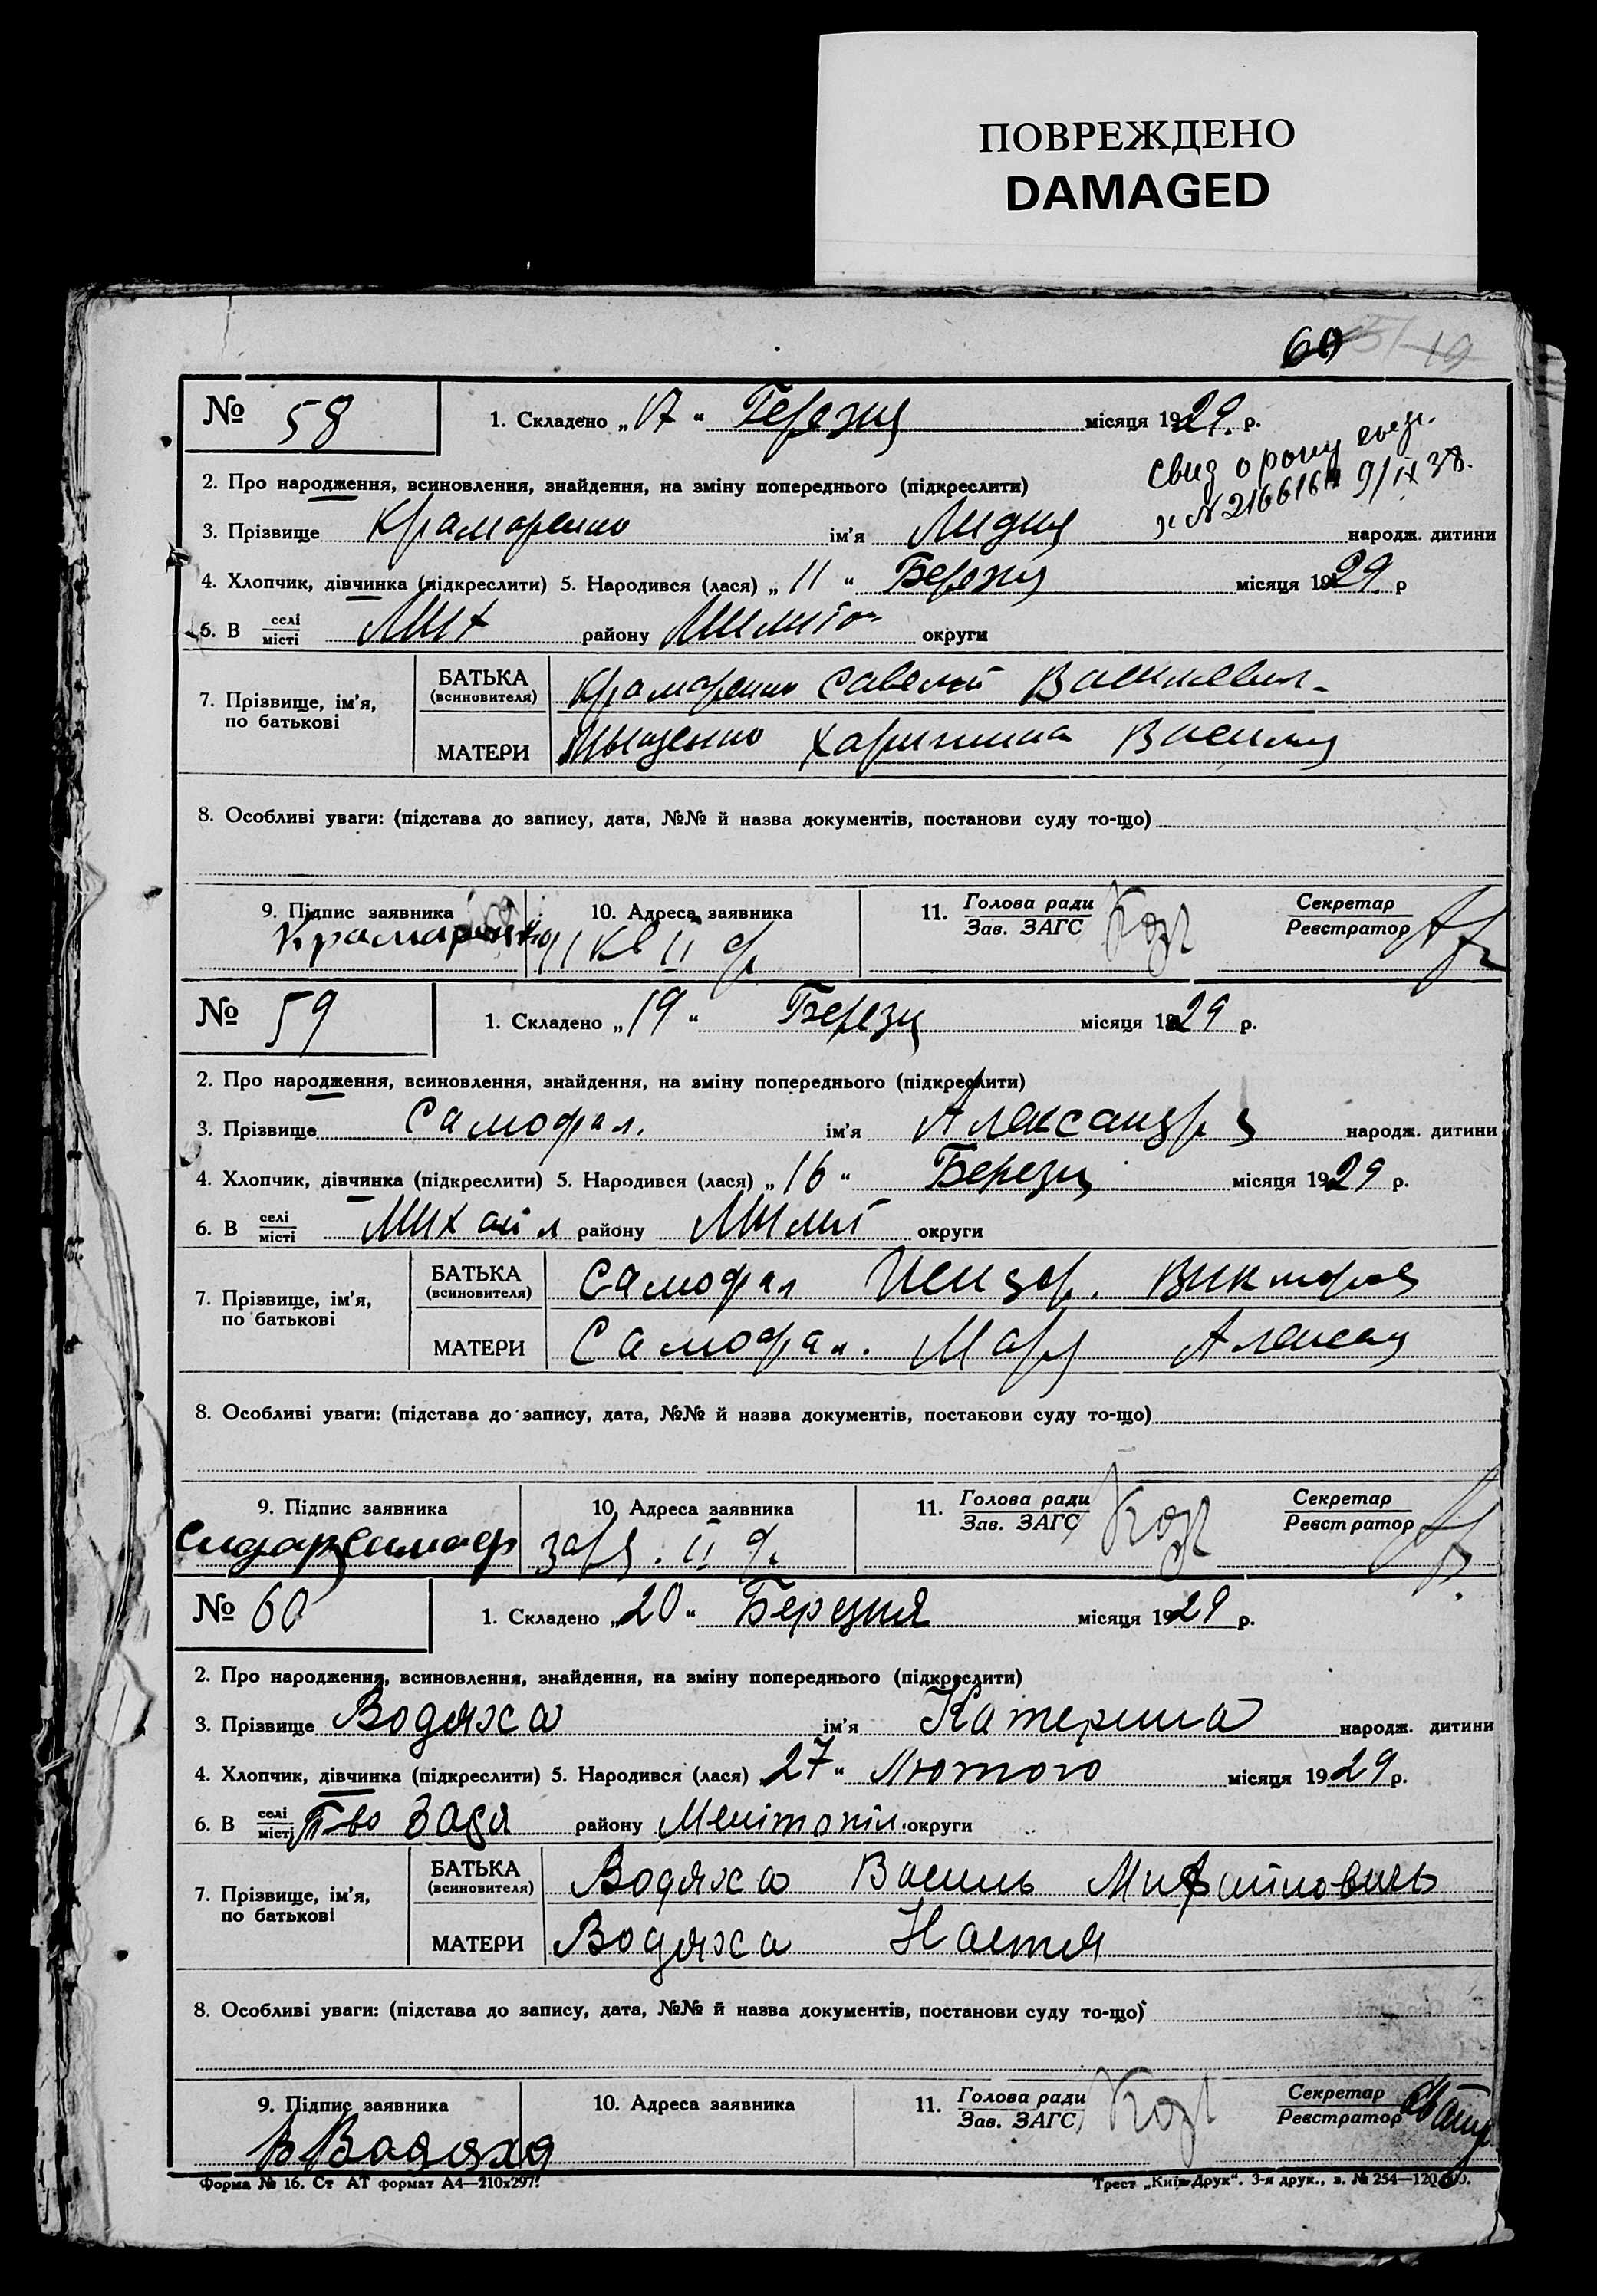 ПОВРЕЖДЕНО
DAMAGED
60 19
№ 58 1. Складено „17“ Березня місяця 1929. р.
свид о рону
№ 216616 9/IX 38.
2. Про народження, всиновлення, знайдення, на зміну попереднього (підкреслити)
3. Прізвище Крамаренко ім'я Лидия народж. дитини
4. Хлопчик, дівчинка (підкреслити) 5. Народився (лася) „11“ Березня місяця 1929. р
6. В селі/місті Мих району Милито округи
7. Прізвище, ім'я, по батькові
БАТЬКА (всиновителя) Крамаренко Савелий Василевич
МАТЕРИ Харитина Василия
8. Особливі уваги: (підстава до запису, дата, №№ й назва документів, постанови суду то-що)
9. Підпис заявника 10. Адреса заявника 11. Голова ради/Зав. ЗАГС Секретар/Реєстратор
Крамаренко кв II
№ 59 1. Складено „19“ Березн місяця 1929 р.
2. Про народження, всиновлення, знайдення, на зміну попереднього (підкреслити)
3. Прізвище Самофал. ім'я Александр народж. дитини
4. Хлопчик, дівчинка (підкреслити) 5. Народився (лася) „16“ Березн місяця 1929 р.
6. В селі/місті Михайл району Милит округи
7. Прізвище, ім'я, по батькові
БАТЬКА (всиновителя) Самофал Виктор
МАТЕРИ Самофал. Мар Алексе
8. Особливі уваги: (підстава до запису, дата, №№ й назва документів, постанови суду то-що)
9. Підпис заявника 10. Адреса заявника 11. Голова ради/Зав. ЗАГС Секретар/Реєстратор
заря. II
№ 60 1. Складено „20“ Березня місяця 1929 р.
2. Про народження, всиновлення, знайдення, на зміну попереднього (підкреслити)
3. Прізвище Водяха ім'я Катерина народж. дитини
4. Хлопчик, дівчинка (підкреслити) 5. Народився (лася) „27“ Лютого місяця 1929 р.
6. В селі/місті Т-во Заря району Мелітопіл. округи
7. Прізвище, ім'я, по батькові
БАТЬКА (всиновителя) Водяха Василь
МАТЕРИ Водяха Настя
8. Особливі уваги: (підстава до запису, дата, №№ й назва документів, постанови суду то-що)
9. Підпис заявника 10. Адреса заявника 11. Голова ради/Зав. ЗАГС Секретар/Реєстратор
В Водяха
Форма № 16. Ст АТ формат А4—210х297. Трест „Київ-Друк“. 3-я друк., з. № 254—120